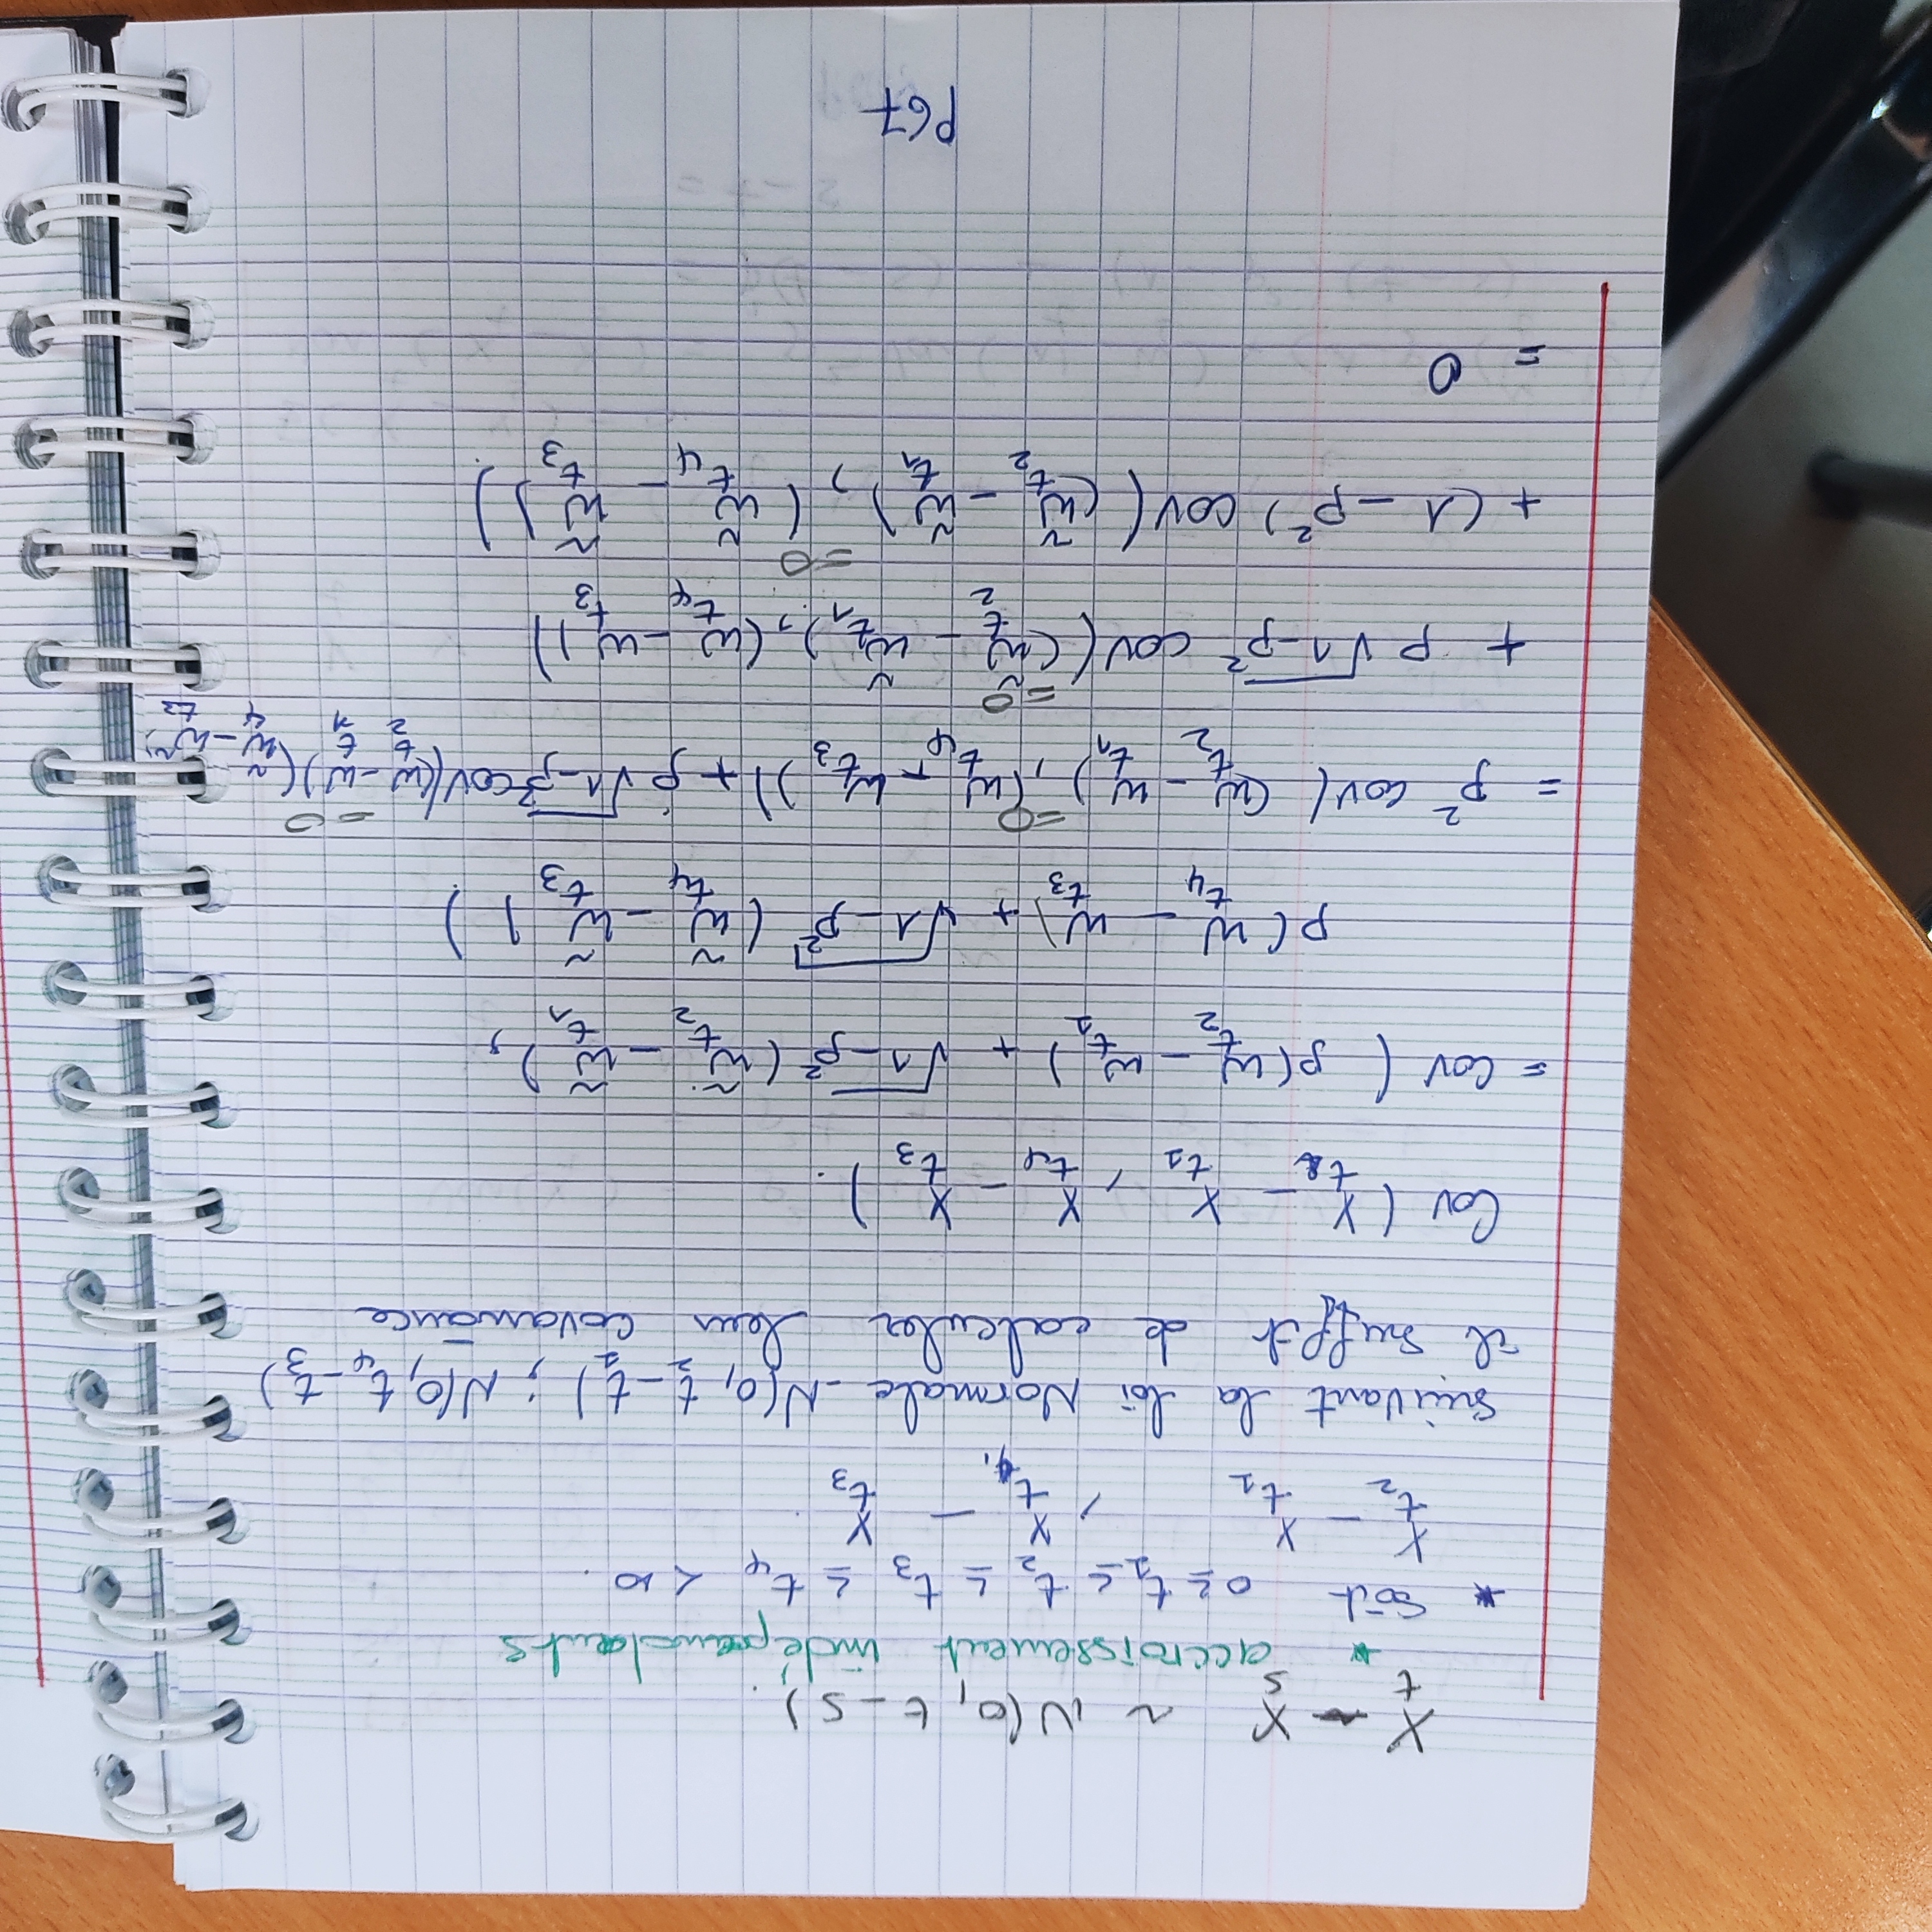 X_t - X_s ~ N(0, t-s).
* accroissement indépendants
* Soit 0 ≥ t_1 ≤ t_2 ≤ t_3 ≤ t_4 < ∞.
X_{t_2} - X_{t_1} , X_{t_4} - X_{t_3}.
suivant la loi Normale N(0, t_2 - t_1) ; N(0, t_4 - t_3)
il suffit de calculer leur covariance
Cov ( X_{t_2} - X_{t_1} , X_{t_4} - X_{t_3} ).
= Cov ( ρ(W_{t_2} - W_{t_1}) + √(1-ρ²) (W̃_{t_2} - W̃_{t_1}) ,
ρ( W_{t_4} - W_{t_3}) + √(1-ρ²) ( W̃_{t_4} - W̃_{t_3} ) )
= ρ² cov( (W_{t_2} - W_{t_1}) , (W_{t_4} - W_{t_3})) =0 + ρ √(1-ρ²) cov((W_{t_2} - W_{t_1}) (W̃_4 - W̃_{t_3}) =0
+ ρ √(1-ρ²) cov( (W̃_{t_2} - W̃_{t_1}) , (W_{t_4} - W_{t_3})) =0
+ (1 - ρ²) cov( (W̃_{t_2} - W̃_{t_1}) , ( W̃_{t_4} - W̃_{t_3} )) =0
= 0
P67